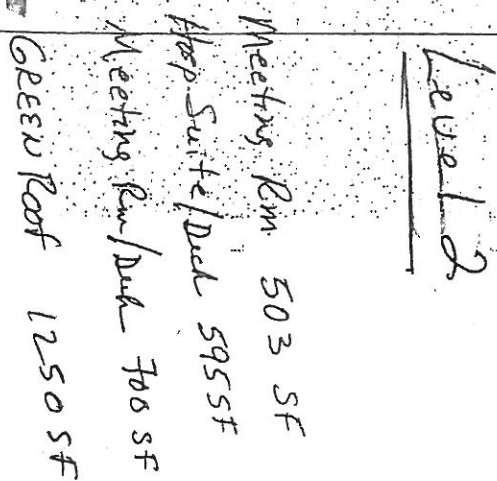 Level 2
Meeting Rm 503 SF
Hosp. Suite/Deck 595 SF
Meeting Rm/Deck 700 SF
GREEN Roof 1250 SF